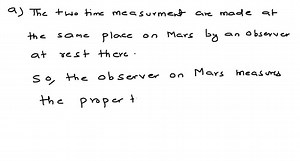 a) The two time measurment are made at
the same place on Mars by an observer
at rest there.
So, the observer on Mars measures
the proper t